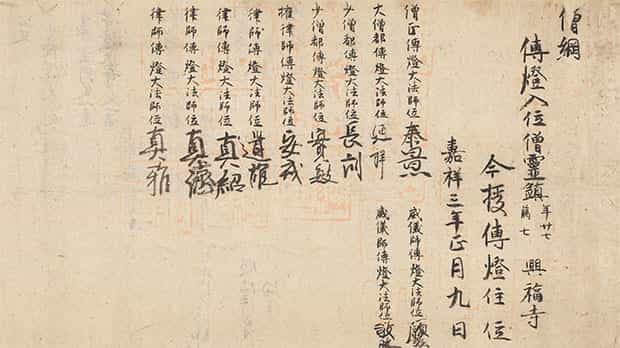 僧綱
傳燈入位僧靈鎮 年廿七 﨟七 興福寺
今授傳燈住位
嘉祥三年正月九日
僧正傳燈大法師位泰景
威儀師傳燈大法師位
大僧都傳燈大法師位延祥
威儀師傳燈大法師位
少僧都傳燈大法師位長訓
少僧都傳燈大法師位實敏
權律師傳燈大法師位
律師傳燈大法師位道雄
律師傳燈大法師位真紹
律師傳燈大法師位真濟
律師傳燈大法師位真雅